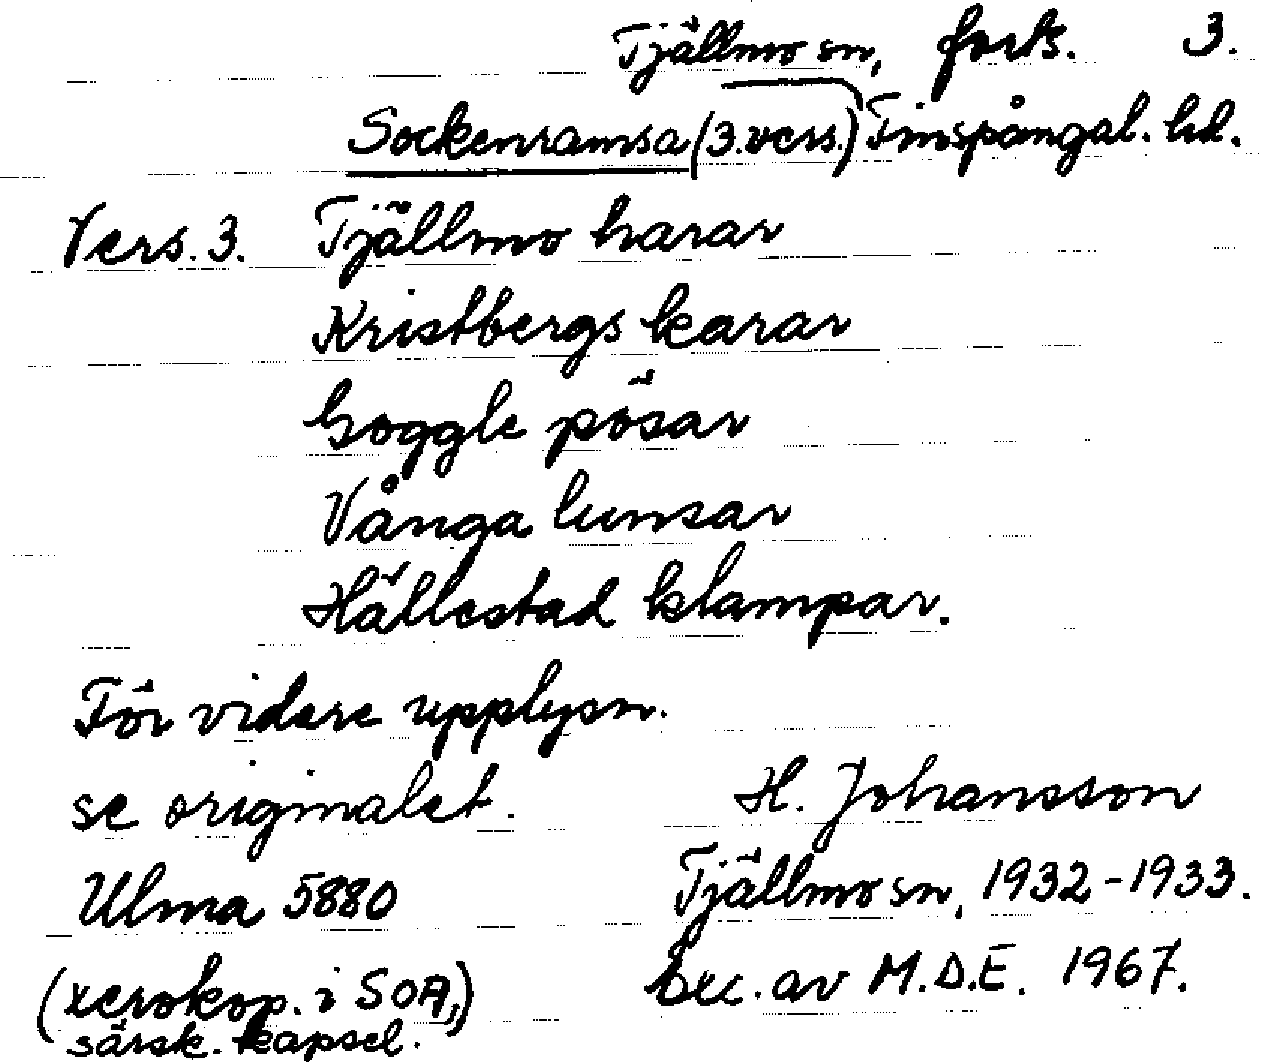 Tjällmo sn, forts. 3.
Sockenramsa (3.vers.) Finspångal. hd.
Vers. 3. Tjällmo harar
Kristbergs karar
Goggle pösar
Vånga lunsar
Hällestad klampar.
För vidare upplysn.
se originalet. H. Johansson
Ulma 5880 Tjällmo sn, 1932-1933.
(xerokop. i SOA, exc. av M.D.E. 1967.
särsk. kapsel.)